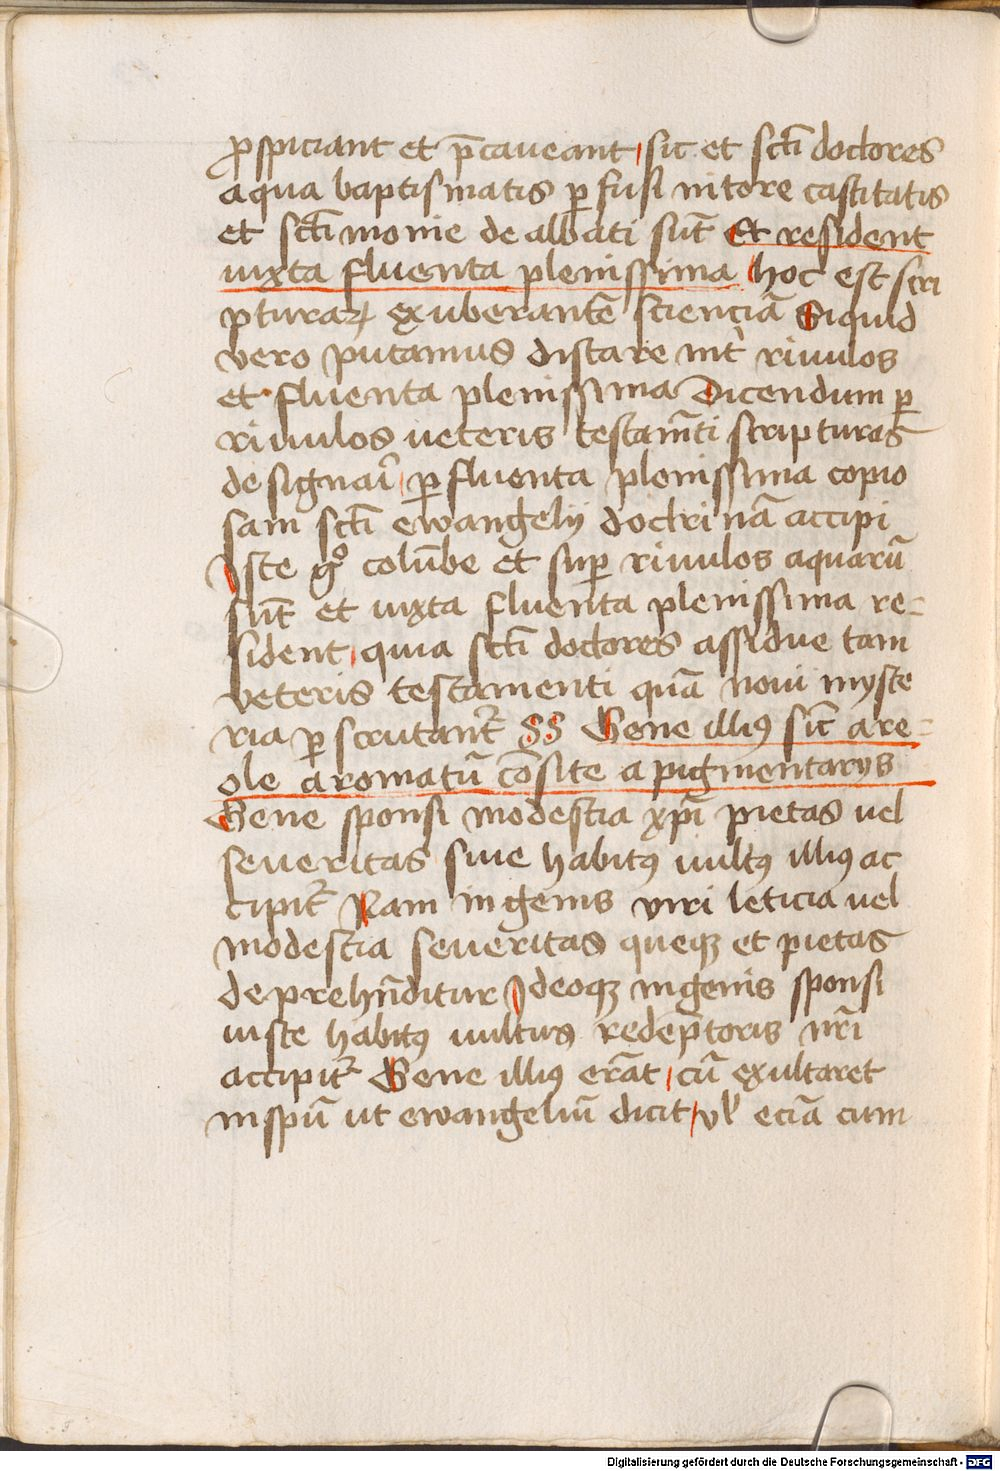 ꝓspiciant et p̄caueant sic et scti̅ doctores
aqua baptismatis ꝑfusi nitore castitatis
et scti̅monie dealbati su̅t Et resident
iuxta fluenta plenissima hoc est scri
pturaꝝ exuberante̅ sciencia̅ Siquid
vero putamus distare int̉ riuulos
et fluenta plenissima Dicendum ꝑ
riuulos veteris testam̅ti scripturas
designari̅ ꝑ fluenta plenissima copio
sam scti̅ ewangelij doctrina̅ accipi
Iste gͦ colu̅be et suꝑ riuulos aquaru̅
su̅t et iuxta fluenta plenissima re=
sident quia scti̅ doctores assidue tam
veteris testamenti qua̅ noui myste
ria ꝑscrutant᷑ §§ Gene illiꝯ sic̅ are=
ole aromatu̅ co̅site a pigmentarijs
Gene sponsi modestia xpi̅ pietas vel
seueritas siue habitꝯ vultꝯ illiꝯ ac
cipit᷑ Nam in genis viri leticia vel
modestia seueritas queqꝫ et pietas
deprehn̅ditur Ideoqꝫ in genis sponsi
iuste habitꝯ vultus redempto̅ris nr̅i
accipit᷑ Gene illiꝯ era̅t cu̅ exultaret
in spu̅ ut ewangeliu̅ dicit vl̓ ecia̅ cum
Digitalisierung gefördert durch die Deutsche Forschungsgemeinschaft - DFG